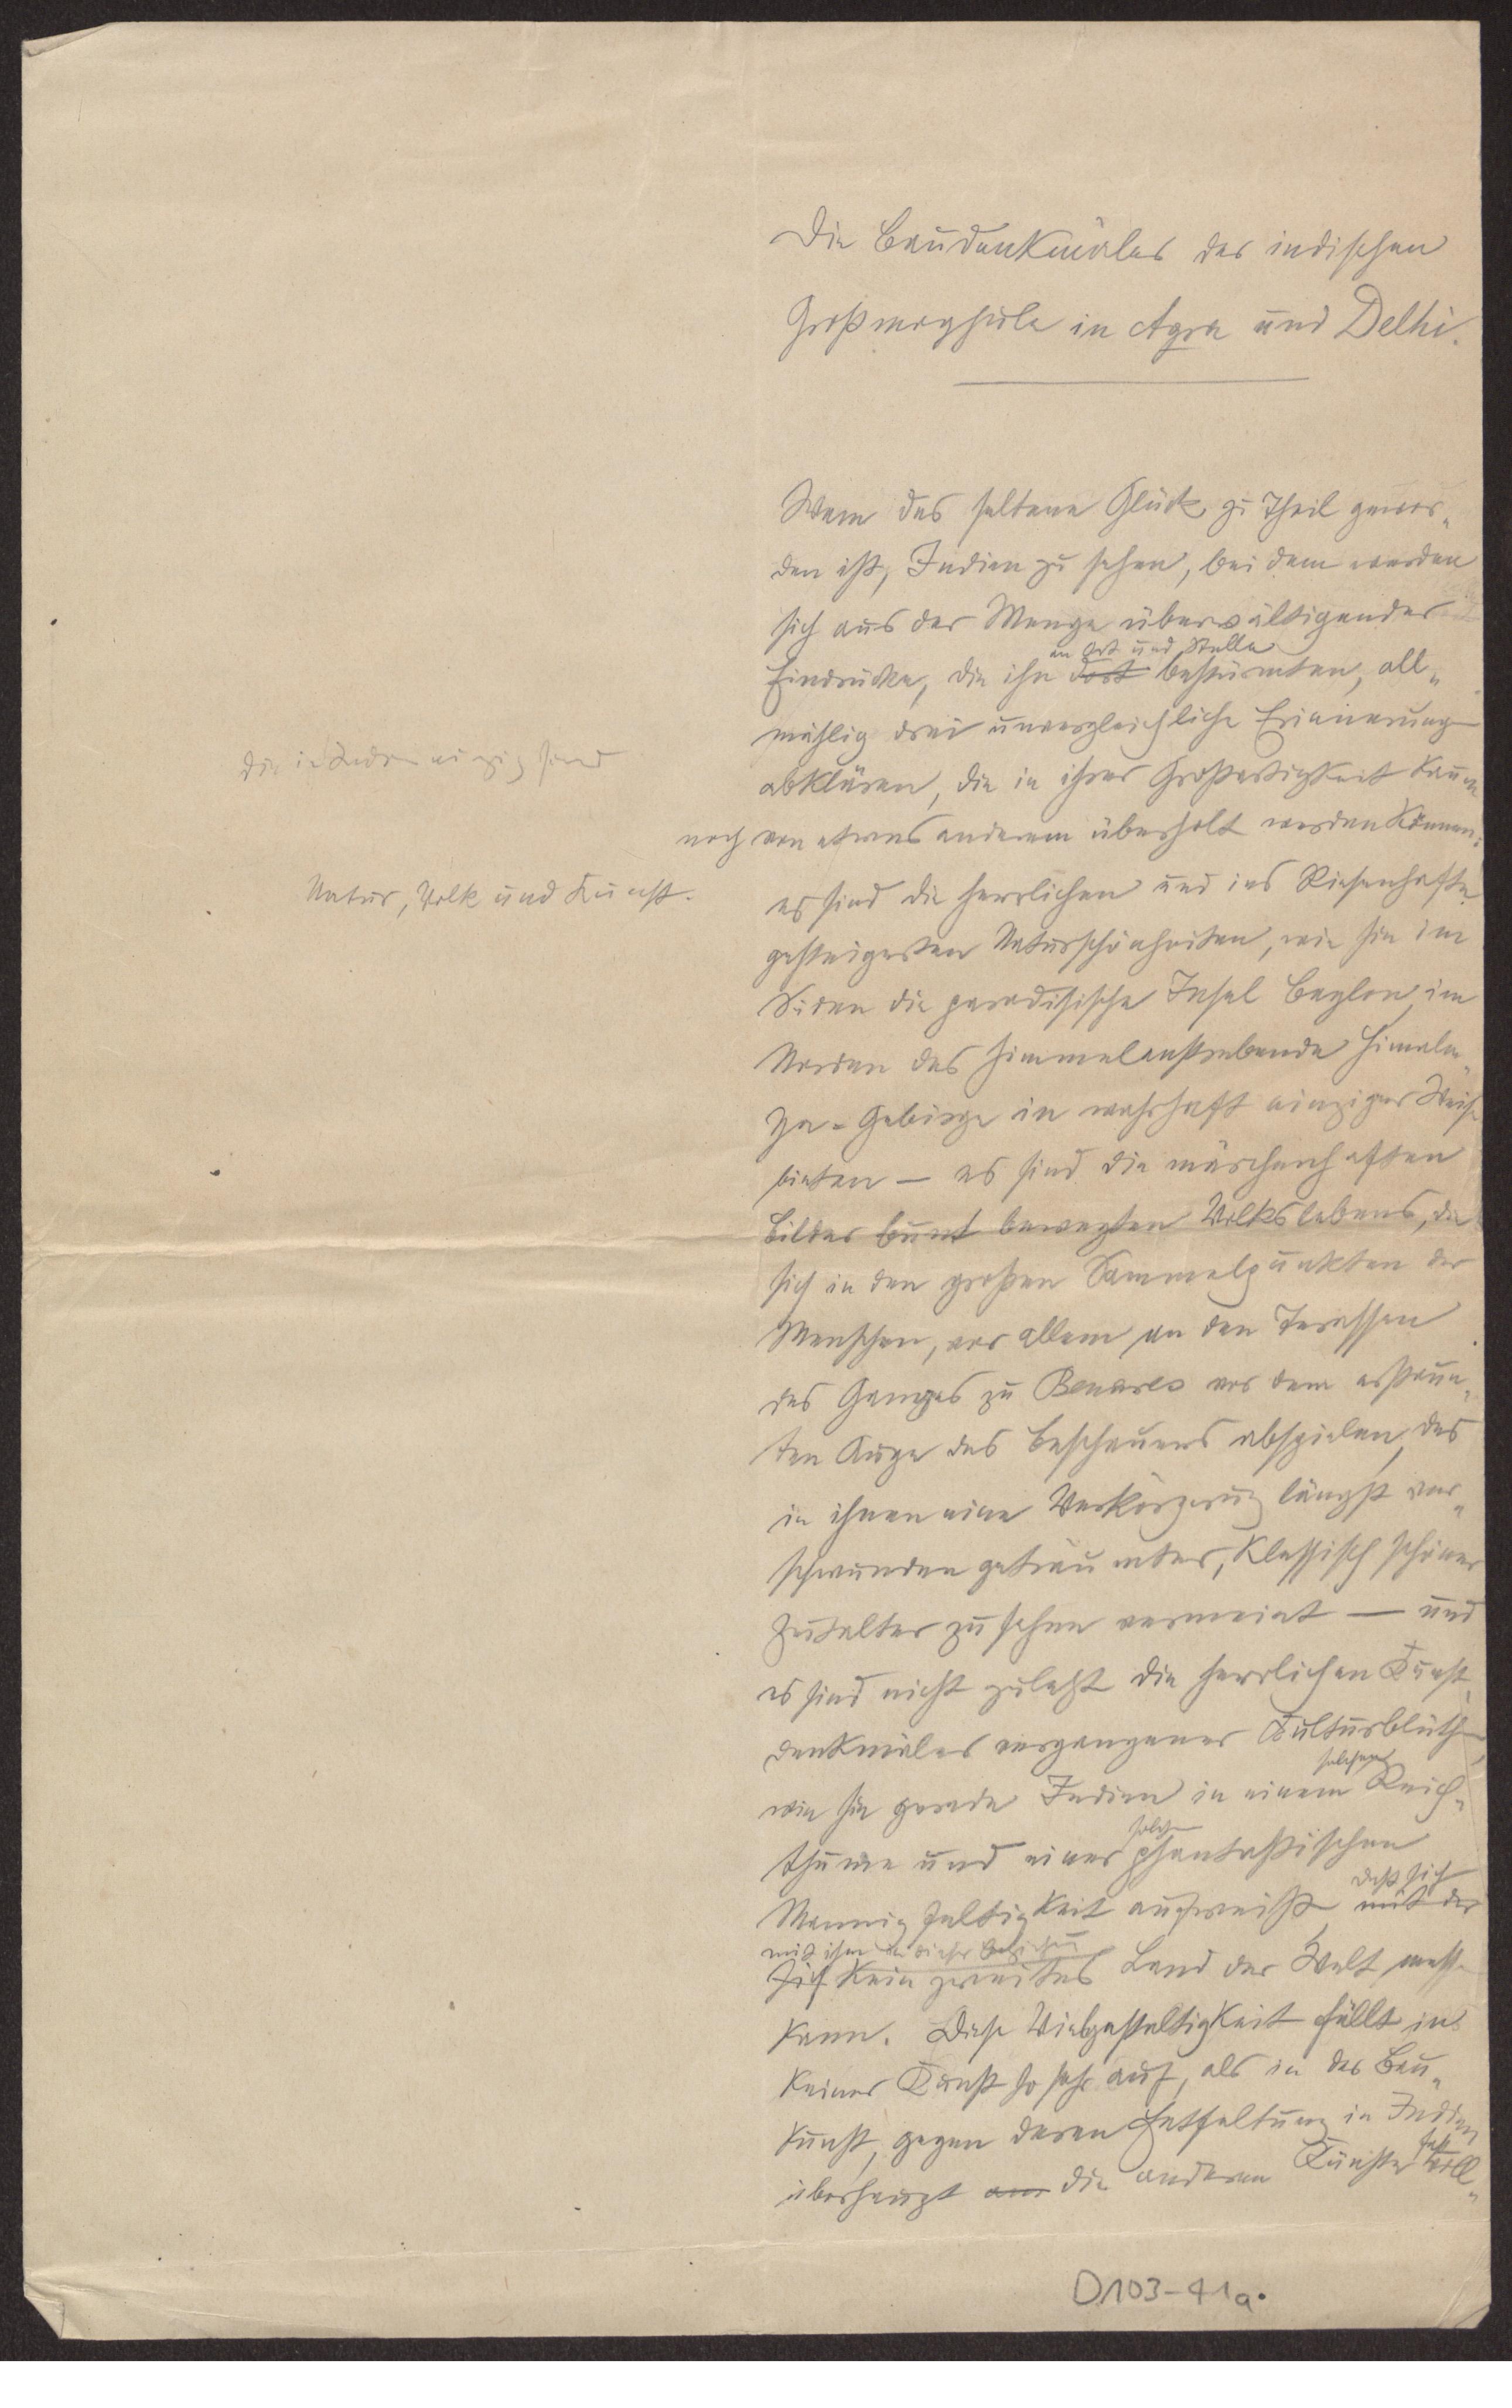 Die Baudenkmäler der indischen
Großmoghule in Agra und Delhi.
Wem das seltene Glück zu Theil gewor-
den ist, Indien zu sehen, bei dem werden
sich aus der Menge überwältigender
an Ort und Stelle
Eindrücke, die ihn dort bestürmten, all-
mählig drei unvergleichliche Erinnerung
die in Indien einzig sind
abklären, die in ihrer Großartigkeit kaum
noch von etwas anderem überholt werden können:
Natur, Volk und Kunst.
es sind die herrlichen und ins Riesenhafte
gesteigerten Naturschönheiten, wie sie im
Süden die paradisische Insel Ceylon, im
Norden das himmelanstrebende Himala-
ya-Gebirge in wahrhaft einziger Weise
bieten — es sind die märchenhaften
Bilder bunt bewegten Volkslebens, die
sich in den großen Sammelpunkten der
Menschen, vor allem an den Terassen
des Ganges zu Benares vor dem erstaun-
ten Auge des Beschauers abspielen, der
in ihnen eine Verkörperung längst ver-
schwunden geträumter, klassisch schöner
Zeitalter zu sehen vermeint — und
es sind nicht zuletzt die herrlichen Kunst
denkmäler vergangener Kulturblüthe,
solchen
wie sie gerade Indien in einem Reich-
solch
thume und einer phantastischen
daß sich
Mannigfaltigkeit aufweist, mit der
mit ihm in dieser Beziehung
sich kein zweites Land der Welt messen
kann. Diese Vielgestaltigkeit fällt in
keiner Kunst so sehr auf, als in der Bau-
kunst, gegen deren Entfaltung in Indien
fast
überhaupt die anderen Künste voll-
D103-41a.